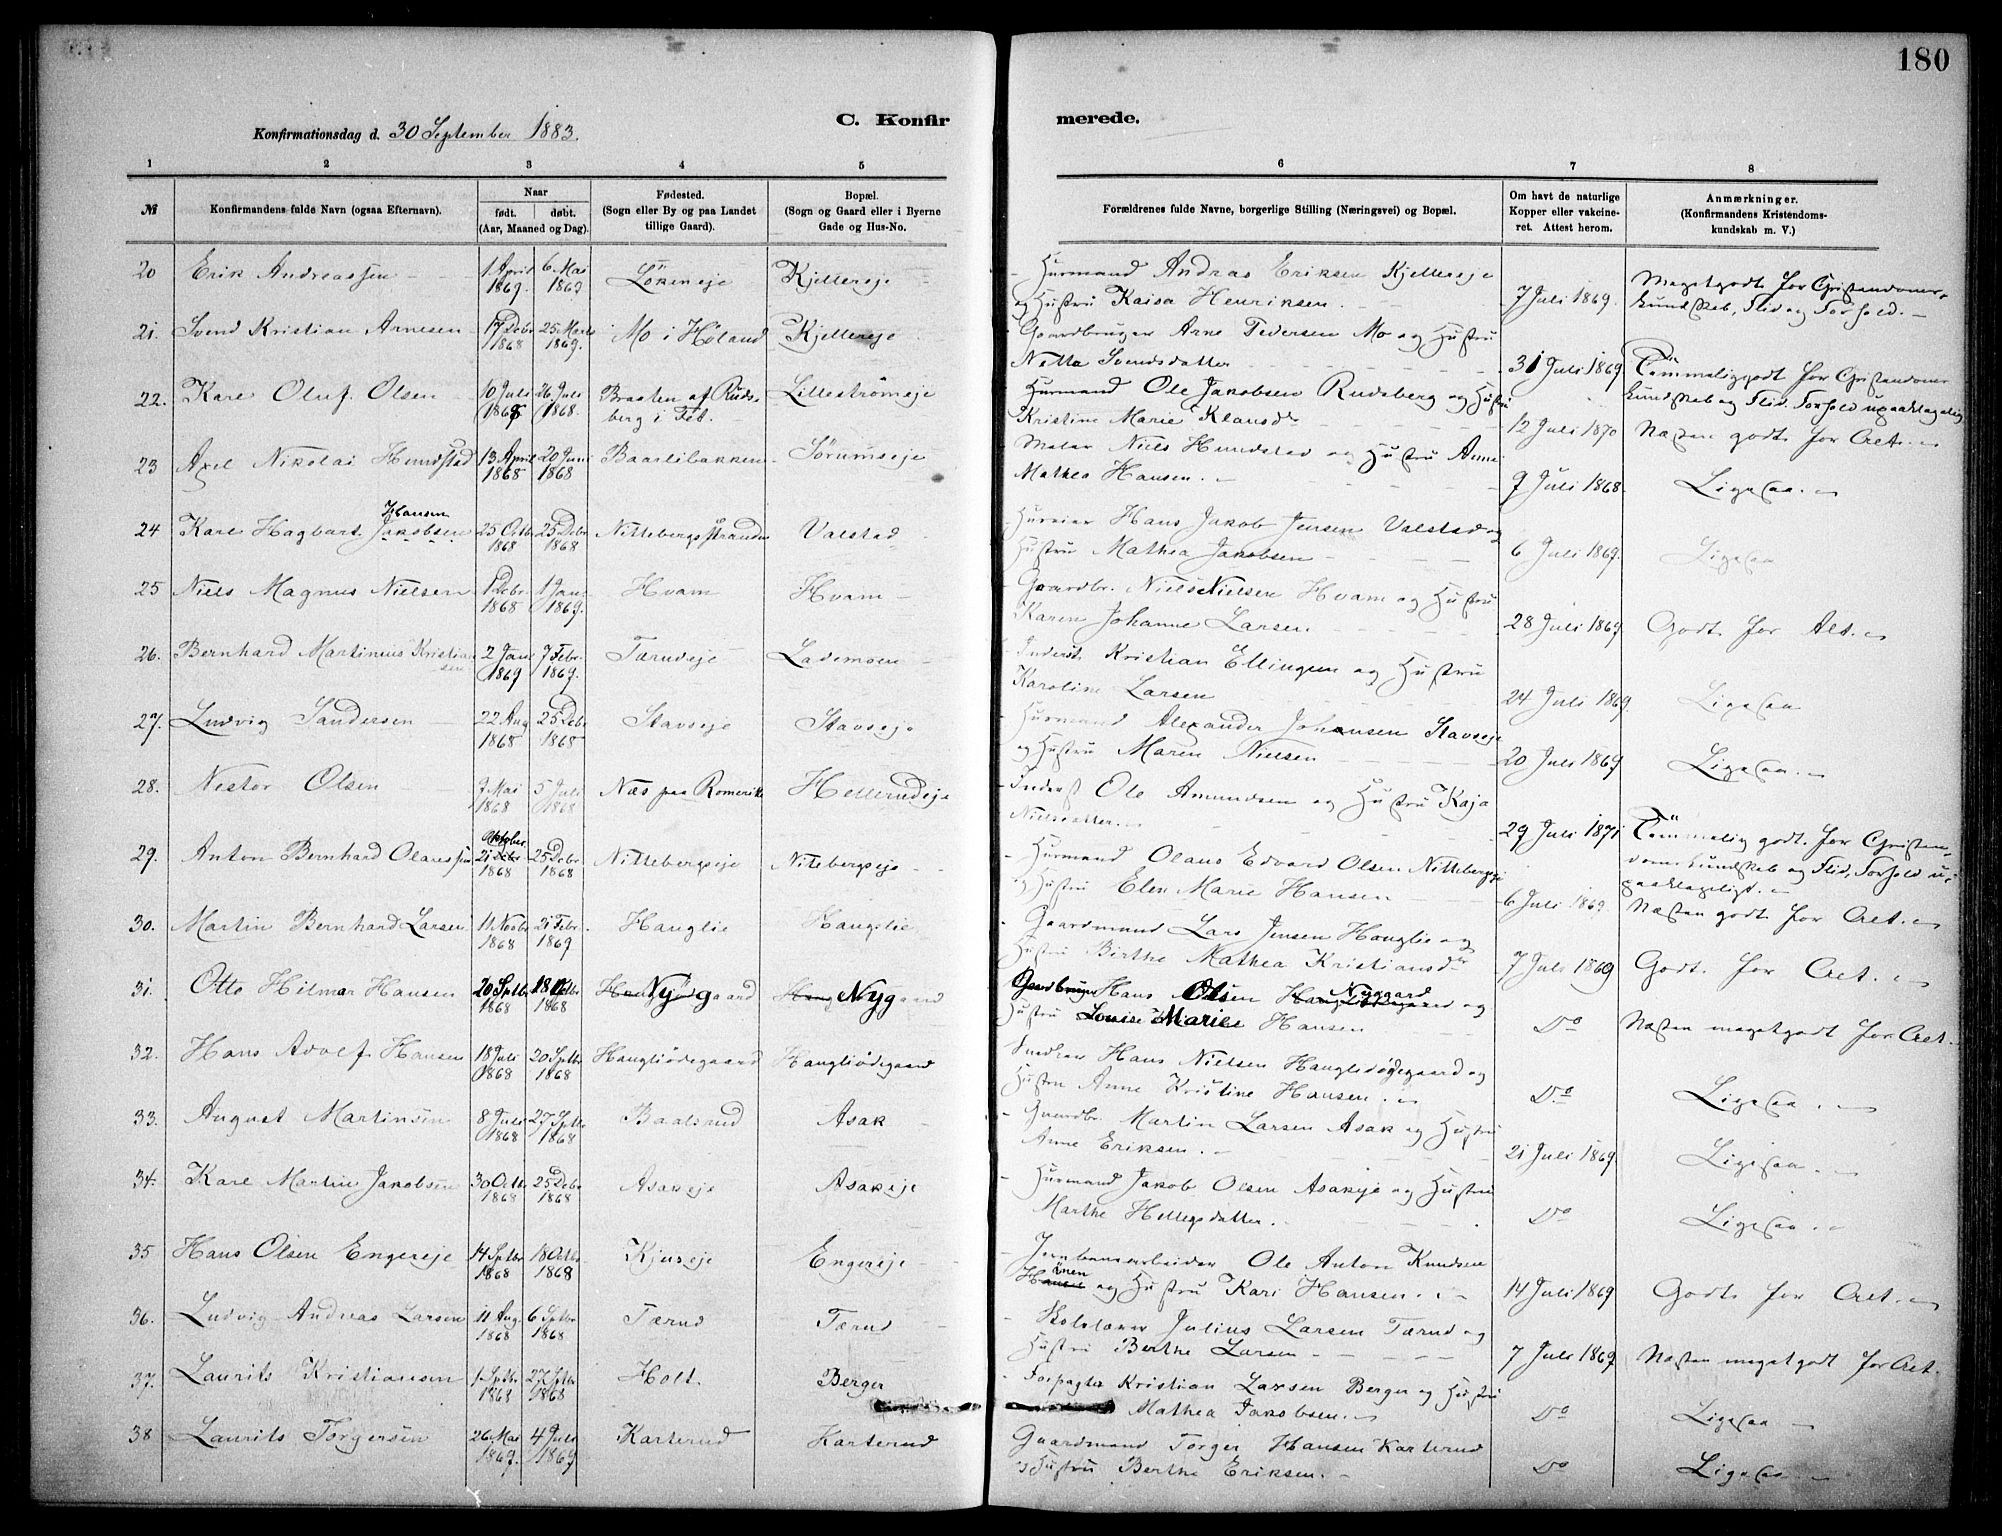 180
C. Konfirmerede.
Konfirmationsdag d. 30 September 1883.
1 2 3 4 5 6 7 8
№ Konfirmandens fulde Navn (ogsaa Efternavn). Naar født. døbt. (Aar, Maaned og Dag). Fødested. (Sogn eller By og paa Landet tillige Gaard). Bopæl. (Sogn og Gaard eller i Byerne Gade og Hus-No. Forældrenes fulde Navne, borgerlige Stilling (Næringsvei) og Bopæl. Om havt de naturlige Kopper eller vakcineret. Attest herom. Anmærkninger. (Konfirmandens Kristendomskundskab m. V.)
20 Erik Andreassen 1 April 1869. 6 Mai 1869 Kjellereje Husmand Andras Eriksen Kjellereje
og Hustru Kaisa Henriksen. 7 Juli 1869. Megetgodt for Cristendomskundskab, Flid og Forhold.
21. Svend Kristian Arnesen 17 Debr 1868 25 Marts 1869. Mo i Høland Kjellereje Gaardbruger Arne Pedersen Mo og Hustru
Netta Svendsdatter 31 Juli 1869 Temmeliggodt for Cristendomskundskab og Flid. Forhold upaaklagelig
22. Kare Oluf Olsen 10 Juli 1868 26 Juli 1868. Braaten af Rudsberg i Fet. Lillestrømeje Husmand Ole Jakobsen Rudsberg og Hustru
Kristine Marie Klausdr 12 Juli 1870 Næsten godt for Alt.
23 Axel Nikolai Hundstad 13 April 1868 20 Juni 1868 Baarlibakken Sørumseje Maler Niels Hundstad og Hustru Anne
Mathea Hansen. 9 Juli 1868. Ligesaa.
24 Karl Hagbart Jakobsen Hansen 25 Octb 1868 25 Debr 1868 Nittebergsstranden Valstad Huseier Hans Jakob Jensen Valstad og
Hustru Mathea Jakobsen 6 Juli 1869. Ligesaa
25 Niels Magnus Nielsen 1 Debr 1868 1 Jan 1869. Hvam Hvam Gaardbr. Niels Nielsen Hvam og Hustru
Karen Johanne Larsen. 28 Juli 1869 Godt for Alt.
26. Bernhard Martinius Kristiansen 2 Jan 1869 7 Febr 1869. Tærudeje Lademoen Inderst Kristian Ellingsen og Hustru
Karoline Larsen 24 Juli 1869. Ligesaa
27. Ludvig Sandersen 22 Aug 1868 25 Debr 1868 Stavseje Stavseje Husmand Alexander Johansen Stavseje
og Hustru Maren Nielsen 20 Juli 1869 Ligesaa.
28. Nestor Olsen 9 Mai 1868 5 Juli 1868 Næs paa Romerike Hellerudeje Inderst Ole Amundsen og Hustru Kaja
Nielsdatter. 29 Juli 1871 Temmelig godt for Cristendomskundskab og Flid, Forhold upaaklageligt.
29. Anton Bernhard Olaussen 21 Oktober 1868 25 Debr 1868 Nittebergseje Nittebergseje Husmand Olaus Edvard Olsen Nittebergseje
og Hustru Elen Marie Hansen 6 Juli 1869 Næsten godt for Alt.
30. Martin Bernhard Larsen 11 Novbr 1868 21 Febr. 1869 Hauglie Hauglie Gaardmand Lars Jensen Hauglie og
Hustru Birthe Mathea Kristiansdr 7 Juli 1869 Godt for Alt.
31. Otto Hilmar Hansen 20 Septbr 1868 18 Octbr 1868 Nygaard Nygaard Gaardbruger Hans Olsen Nygaard og
Hustru Louise Marie Hansen Do Næsten megetgodt for Alt.
32. Hans Adolf Hansen 18 Juli 1868 20 Septbr 1868 Haugliødegaard Haugliødegaard Snedker Hans Nielsen Haugliødegaard og
Hustru Anne Kristine Hansen. Do Ligesaa.
33. August Martinsen 8 Juli 1868 27 Septbr 1868 Baalsrud Asak Gaardbr. Martin Larsen Asak og Hustru
Anne Eriksen. 21 Juli 1869. Ligesaa.
34. Karl Martin Jakobsen 30 Octbr 1868 25 Debr 1868 Asakeje Asakeje Husmand Jakob Olsen Asakeje og Hustru
Marthe Helgesdatter. Do Ligesaa.
35 Hans Olsen Engereje 14 Septbr 1868 18 Octbr 1868 Kjuseje Engereje Jernbanearbeider Ole Anton Knudsen
og Hustru Kari Hansen. 14 Juli 1869 Godt for Alt.
36. Ludvig Andreas Larsen 11 Aug. 1868 6 Septbr 1868 Tærud Tærud Skolelærer Julius Larsen Tærud og
Hustru Berthe Larsen 7 Juli 1869. Næsten megetgodt for Alt.
37. Laurits Kristiansen 1 Septbr 1868 27 Septbr 1868 Holt. Berger Forpagter Kristian Larsen Berger og Hustru
Mathea Jakobsen. Do Ligesaa
38 Laurits Torgersen 26 Mai 1869. 4 Juli 1869 Karterud Karterud Gaardmand Torger Hansen Karterud
og Hustru Berthe Eriksen. Do Ligesaa.